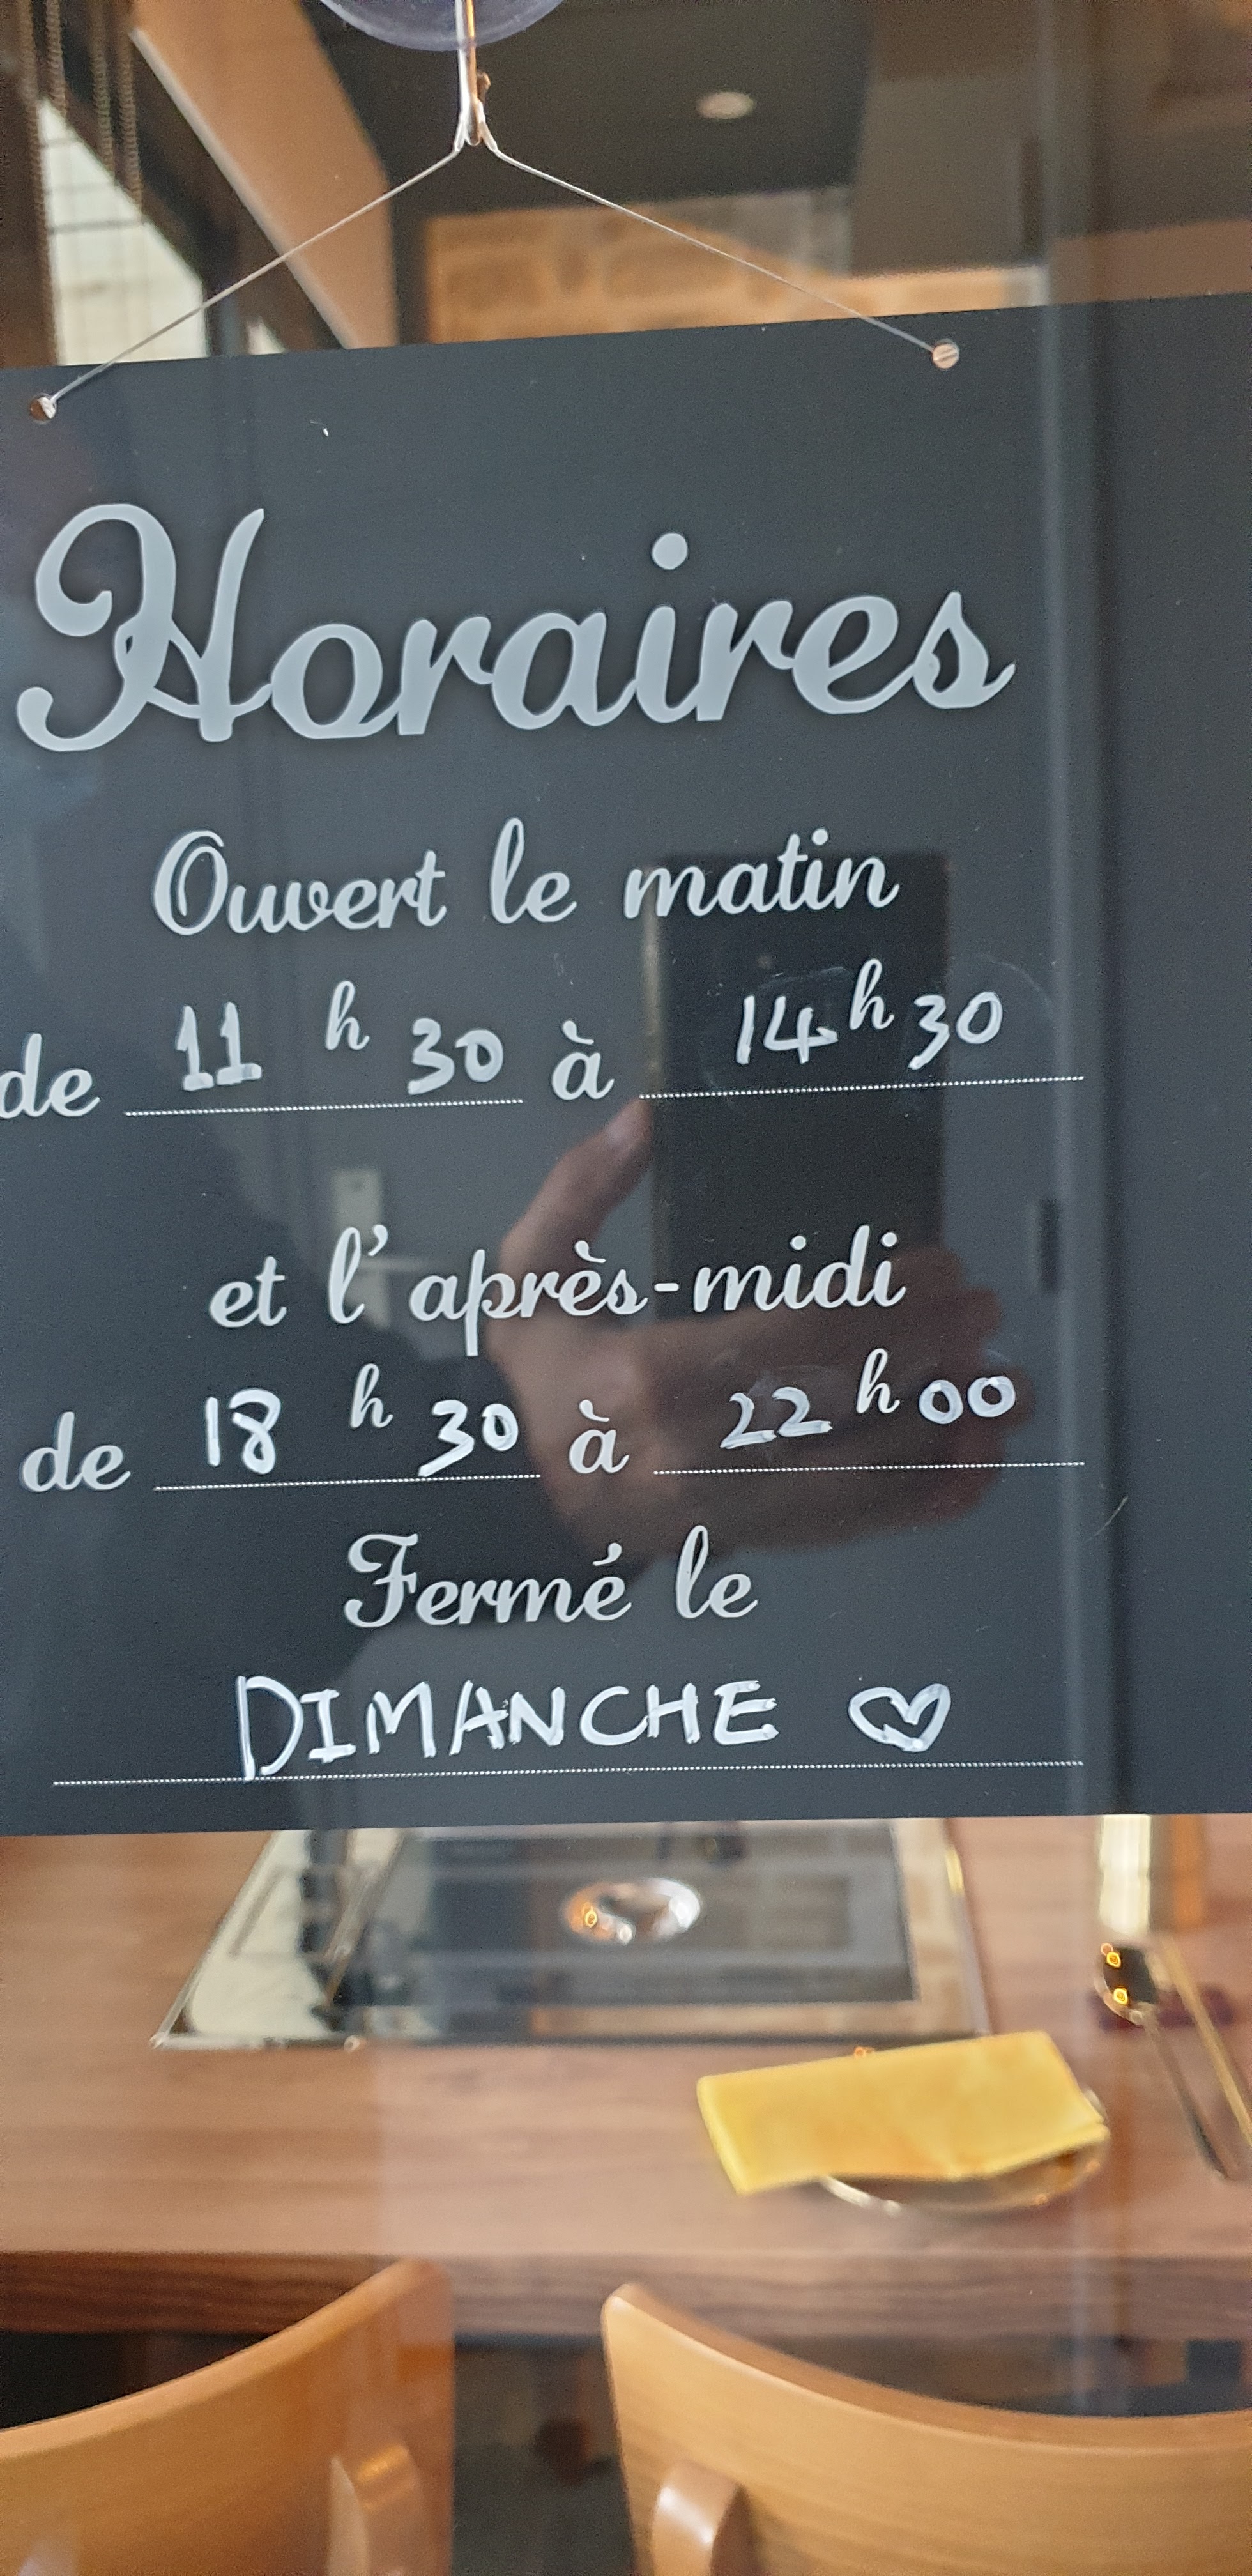 Horaires
Ouvert le matin
de 11 h 30 à 14 h 30
et l'après-midi
de 18 h 30 à 22 h 00
Fermé le
DIMANCHE ♡